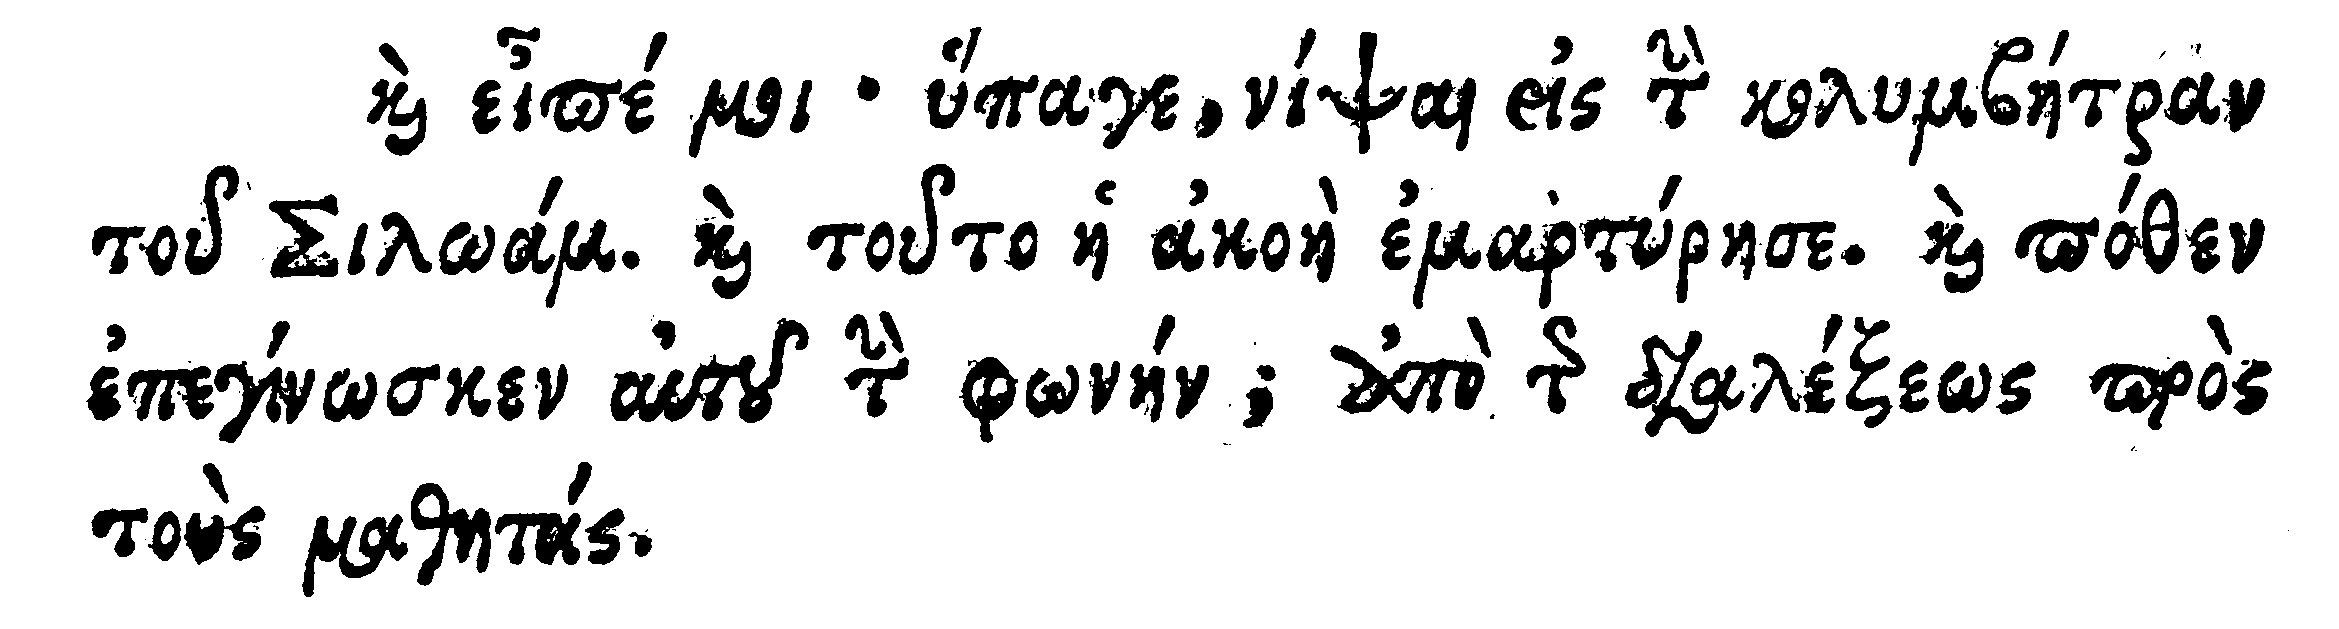 καὶ εἶπέ μοι · ὕπαγε, νίψαι εἰς τὴν κολυμβήτραν
τοῦ Σιλωάμ. καὶ τοῦτο ἡ ἀκοὴ ἐμαρτύρησε. καὶ πόθεν
ἐπεγίνωσκεν αὐτοῦ τὴν φωνήν; ἀπὸ τῆς διαλέξεως πρὸς
τοὺς μαθητάς.